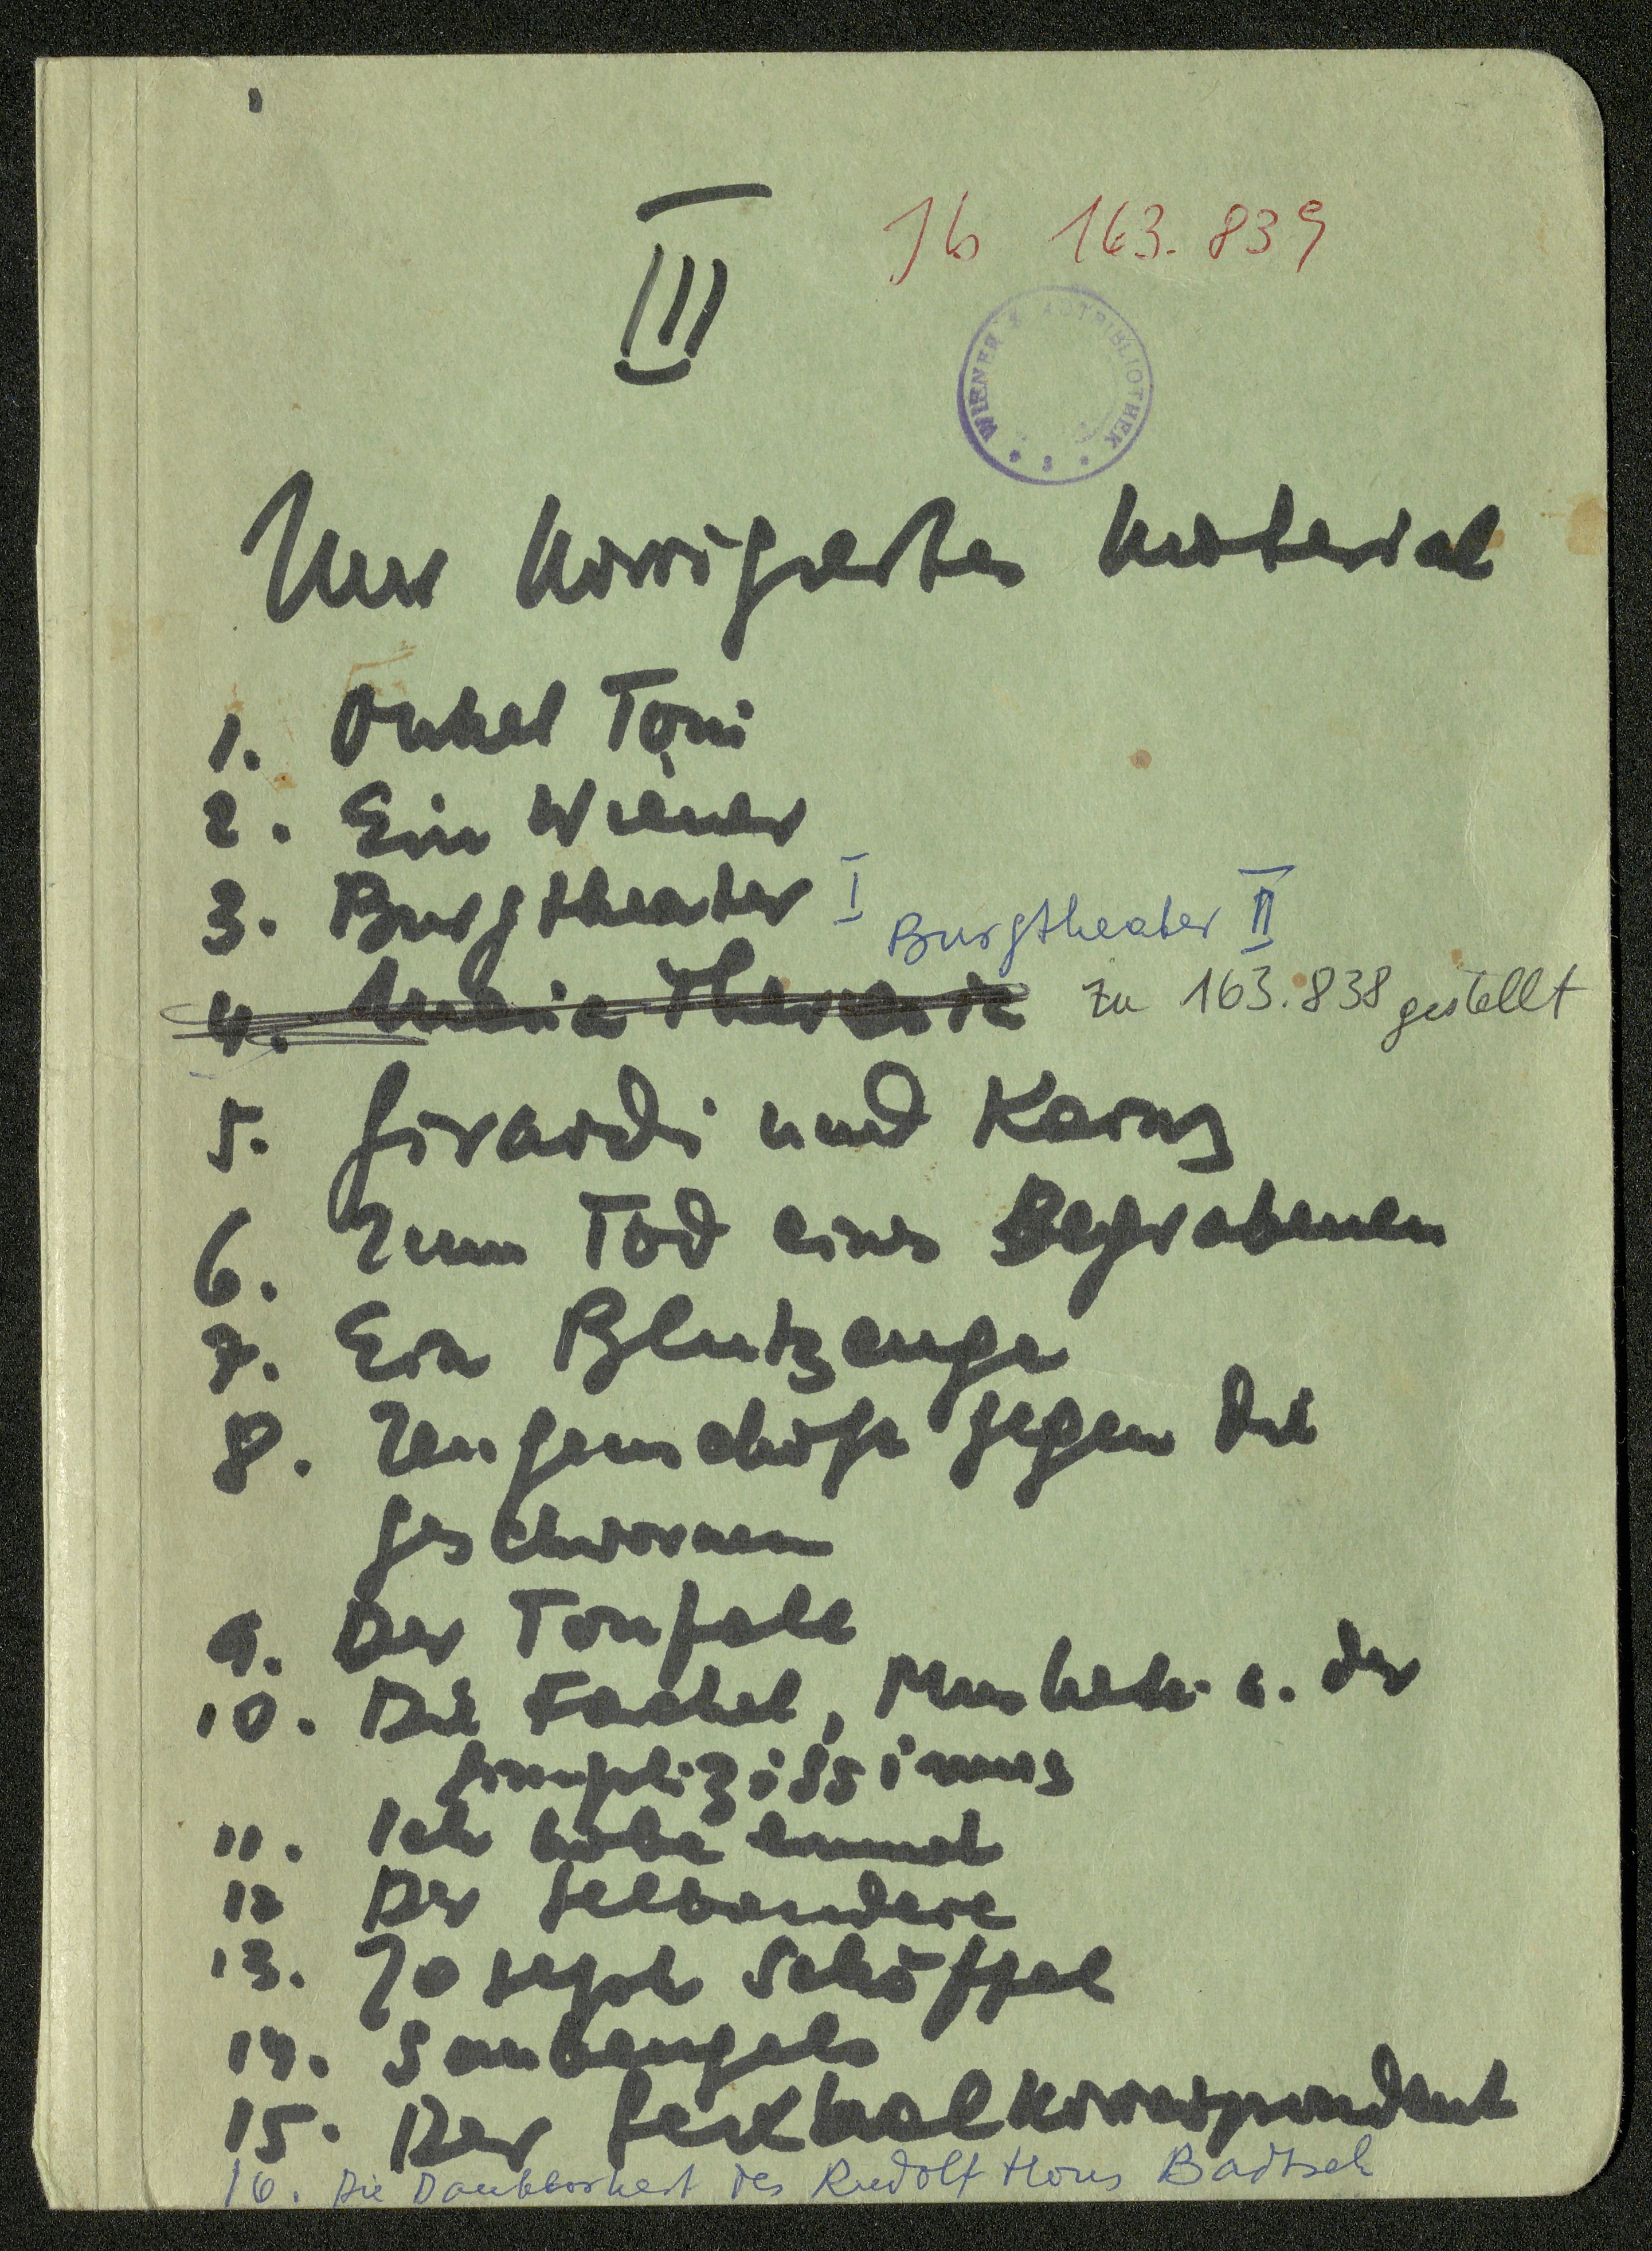 III
Ib 163.839
WIENER STADTBIBLIOTHEK
Nur korrigiertes Material
1. Onkel Toni
2. Ein Wiener
3. Burgtheater I Burgtheater II
4. Maria Theresia zu 163.838 gestellt
5. Girardi und Kainz
6. Zum Tod eines Begrabenen
7. Ein Blutzeuge
8. Zeugenschaft gegen die
Geschwornen
9. Der Tonfall
10. Die Fackel, Muskete u. der
Simplizissimus
11. Ich habe einmal
12 Der Selbandere
13. Joseph Schöffel
14. Saubengels
15. Der Sexualkorrespondent
16. Die Dankbarkeit des Rudolf Hans Bartsch